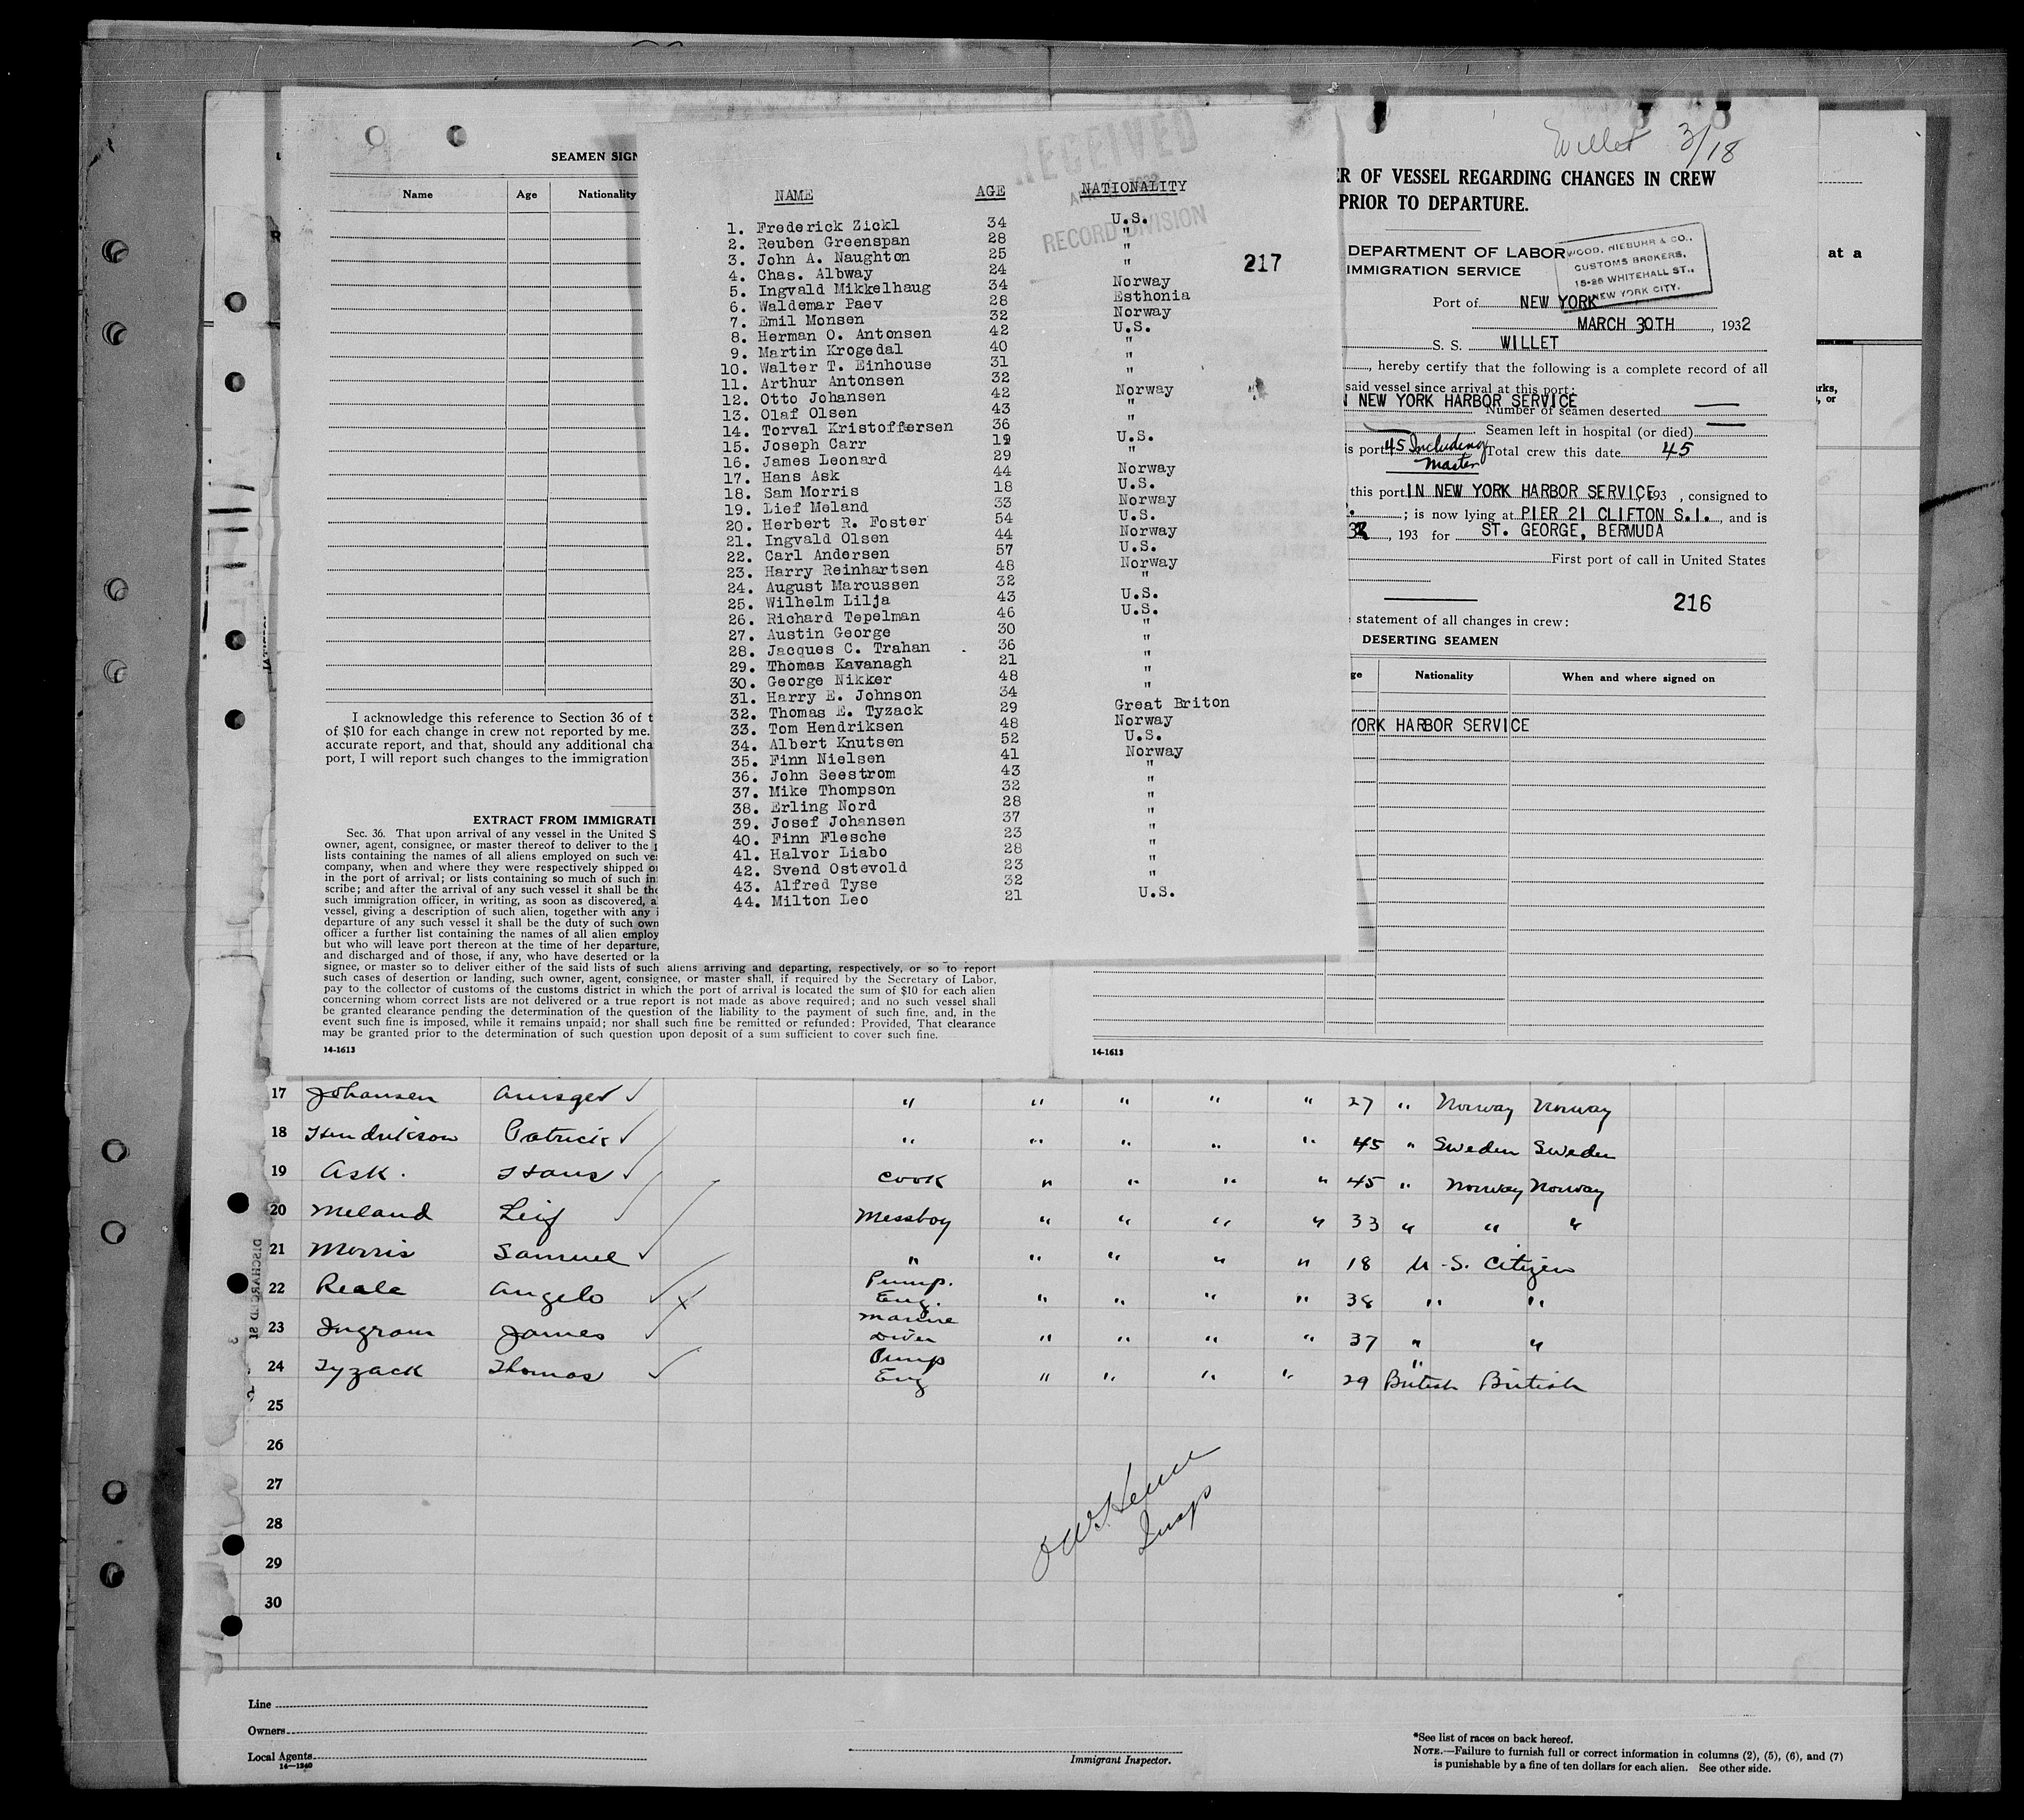 SEAMEN SIGN
Name Age Nationality
I acknowledge this reference to Section 36 of t
of $10 for each change in crew not reported by me.
accurate report, and that, should any additional cha
port, I will report such changes to the immigration
EXTRACT FROM IMMIGRATI
Sec. 36. That upon arrival of any vessel in the United S
owner, agent, consignee, or master thereof to deliver to the
lists containing the names of all aliens employed on such ve
company, when and where they were respectively shipped o
in the port of arrival; or lists containing so much of such in
scribe; and after the arrival of any such vessel it shall be the
such immigration officer, in writing, as soon as discovered, a
vessel, giving a description of such alien, together with any i
departure of any such vessel it shall be the duty of such own
officer a further list containing the names of all alien employ
but who will leave port thereon at the time of her departure,
and discharged and of those, if any, who have deserted or la
signee, or master so to deliver either of the said lists of such aliens arriving and departing, respectively, or so to report
such cases of desertion or landing, such owner, agent, consignee, or master shall, if required by the Secretary of Labor,
pay to the collector of customs of the customs district in which the port of arrival is located the sum of $10 for each alien
concerning whom correct lists are not delivered or a true report is not made as above required; and no such vessel shall
be granted clearance pending the determination of the question of the liability to the payment of such fine, and, in the
event such fine is imposed, while it remains unpaid; nor shall such fine be remitted or refunded: Provided, That clearance
may be granted prior to the determination of such question upon deposit of a sum sufficient to cover such fine.
14-1613
RECEIVED
RECORD DIVISION
NAME AGE NATIONALITY
217
1. Frederick Zickl 34 U.S.
2. Reuben Greenspan 28 "
3. John A. Naughton 25 "
4. Chas. Albway 24 "
5. Ingvald Mikkelhaug 34 Norway
6. Waldemar Paev 28 Esthonia
7. Emil Monsen 32 Norway
8. Herman O. Antonsen 42 U.S.
9. Martin Krogedal 40 "
10. Walter T. Einhouse 31 "
11. Arthur Antonsen 32 "
12. Otto Johansen 42 Norway
13. Olaf Olsen 43 "
14. Torval Kristoffersen 36 "
15. Joseph Carr 19 U.S.
16. James Leonard 29 "
17. Hans Ask 44 Norway
18. Sam Morris 18 U.S.
19. Lief Meland 33 Norway
20. Herbert R. Foster 54 U.S.
21. Ingvald Olsen 44 Norway
22. Carl Andersen 57 U.S.
23. Harry Reinhartsen 48 Norway
24. August Marcussen 32 "
25. Wilhelm Lilja 43 U.S.
26. Richard Tepelman 46 U.S.
27. Austin George 30 "
28. Jacques C. Trahan 36 "
29. Thomas Kavanagh 21 "
30. George Nikker 48 "
31. Harry E. Johnson 34 "
32. Thomas E. Tyzack 29 Great Briton
33. Tom Hendriksen 48 Norway
34. Albert Knutsen 52 U.S.
35. Finn Nielsen 41 Norway
36. John Seestrom 43 "
37. Mike Thompson 32 "
38. Erling Nord 28 "
39. Josef Johansen 37 "
40. Finn Flesche 23 "
41. Halvor Liabo 28 "
42. Svend Ostevold 23 "
43. Alfred Tyse 32 "
44. Milton Leo 21 U.S.
Willet 3/18
R OF VESSEL REGARDING CHANGES IN CREW
PRIOR TO DEPARTURE.
DEPARTMENT OF LABOR
IMMIGRATION SERVICE
WOOD, NIEBUHR & CO.,
CUSTOMS BROKERS,
15-25 WHITEHALL ST.,
NEW YORK CITY.
Port of NEW YORK
MARCH 30TH, 1932
S. S. WILLET
, hereby certify that the following is a complete record of all
said vessel since arrival at this port:
N NEW YORK HARBOR SERVICE
Number of seamen deserted —
Seamen left in hospital (or died) —
is port 45 Including Master Total crew this date 45
this port IN NEW YORK HARBOR SERVICE 193 , consigned to
; is now lying at PIER 21 CLIFTON S.I., and is
, 193 for ST. GEORGE, BERMUDA
First port of call in United States
216
statement of all changes in crew:
DESERTING SEAMEN
ge Nationality When and where signed on
YORK HARBOR SERVICE
14-1613
at a
rks,
, or
17 Johansen Ansger " " " " " 27 " Norway Norway
18 Hendrikson Patrick " " " " " 45 " Sweden Sweden
19 Ask. Hans Cook " " " " 45 " Norway Norway
20 Meland Leif Messboy " " " " 33 " " "
21 Morris Samuel " " " " " 18 U.S. Citizen
22 Reale Angelo Pump. Eng. " " " " 38 " "
23 Ingram James Marine Diver " " " " 37 " "
24 Tyzack Thomas Pump Eng " " " " 29 " British British
25
26
27
28
29
30
Insp
Line
Owners
Local Agents
14-1240
Immigrant Inspector.
*See list of races on back hereof.
NOTE.—Failure to furnish full or correct information in columns (2), (5), (6), and (7)
is punishable by a fine of ten dollars for each alien. See other side.